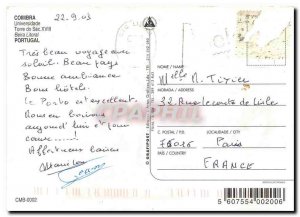 COIMBRA
Universidade
Torre do Séc. XVIII
Beira Litoral
PORTUGAL
22.9.03
Très beau voyage avec
soleil. Beau pays
Bonne ambiance
Bons hôtels.
Le Porto est excellent.
Nous en buvons
aujourd'hui et pour
Affectueux baisers
CMB-0002
NOME / NAME
Melle M. Tixier
MORADA / ADDRESS
32 Rue Leconte de Lisle
C. POSTAL / P.O.
75016 Paris
PAÍS / COUNTRY
FRANCE
5 607554 002006